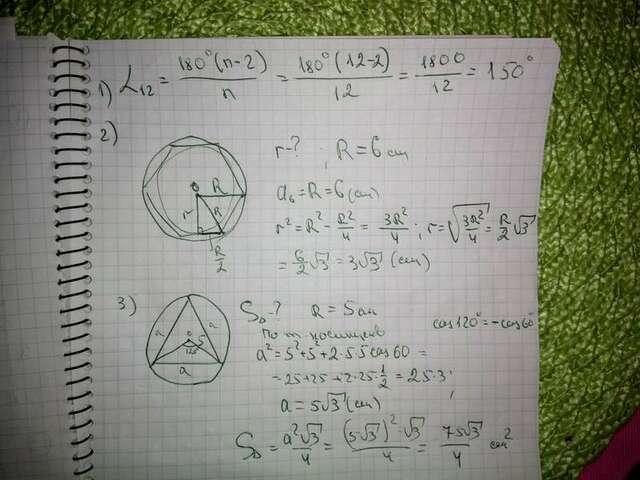 1) L₁₂ = 180°(n-2)/n = 180°(12-2)/12 = 1800/12 = 150°
2)
r-? ; R = 6 cm
a₆ = R = 6 (cm)
r² = R² - R²/4 = 3R²/4 ; r = √(3R²/4) = R/2 √3
= 6/2 √3 = 3√3 (cm)
O
R
r
R
R/2
3)
SΔ-? R = 5 см
По т. косинусов
cos120° = -cos60°
a² = 5² + 5² + 2·5·5 cos60 =
= 25 + 25 + 2·25·1/2 = 25·3 ;
a = 5√3 (см)
SΔ = a²√3/4 = (5√3)²·√3/4 = 75√3/4 см²
a
a
O
5
120°
a